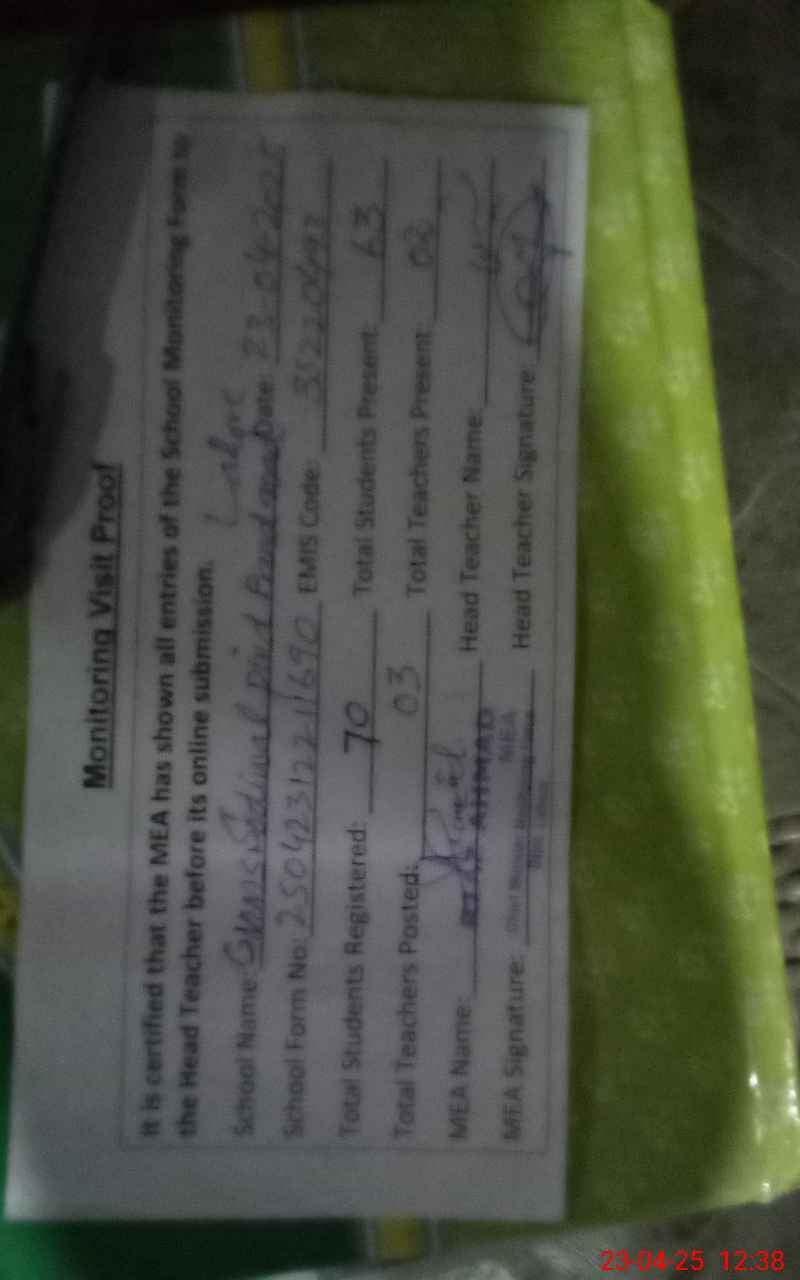 Monitoring Visit Proof
It is certified that the MEA has shown all entries of the School Monitoring Form to
the Head Teacher before its online submission. Lahore
School Name: Date: 23-04-2025
School Form No: 25042312211690 EMIS Code: 35220492
Total Students Registered: 70 Total Students Present: 63
Total Teachers Posted: 03 Total Teachers Present: 03
MEA Name: AHMAD Head Teacher Name:
MEA Signature: MEA Head Teacher Signature:
23-04-25 12:38